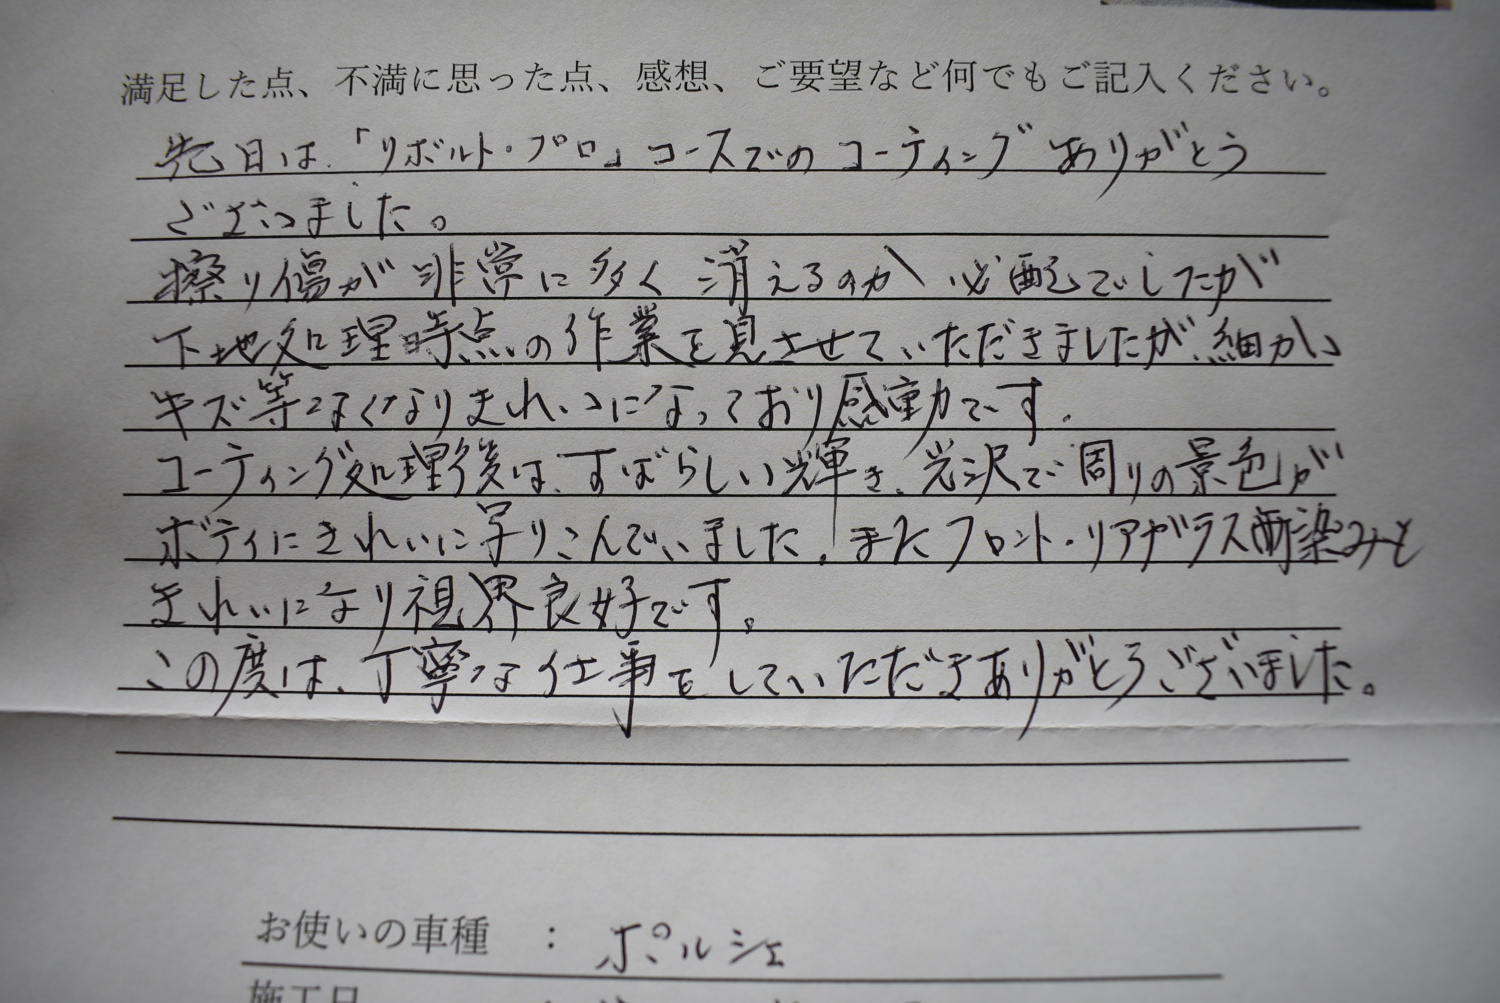 満足した点、不満に思った点、感想、ご要望など何でもご記入ください。
先日は、「リボルト・プロ」コースでのコーティングありがとう
ございました。
擦り傷が非常に多く消えるのか心配でしたが
下地処理時点の作業を見させていただきましたが、細かい
キズ等なくなりきれいになっており感動です。
コーティング処理後は、すばらしい輝き、光沢で周りの景色が
ボディにきれいに写りこんでいました。またフロント・リアガラス
きれいになり視界良好です。
この度は、丁寧な仕事をしていただきありがとうございました。
お使いの車種 : ポルシェ
施工日